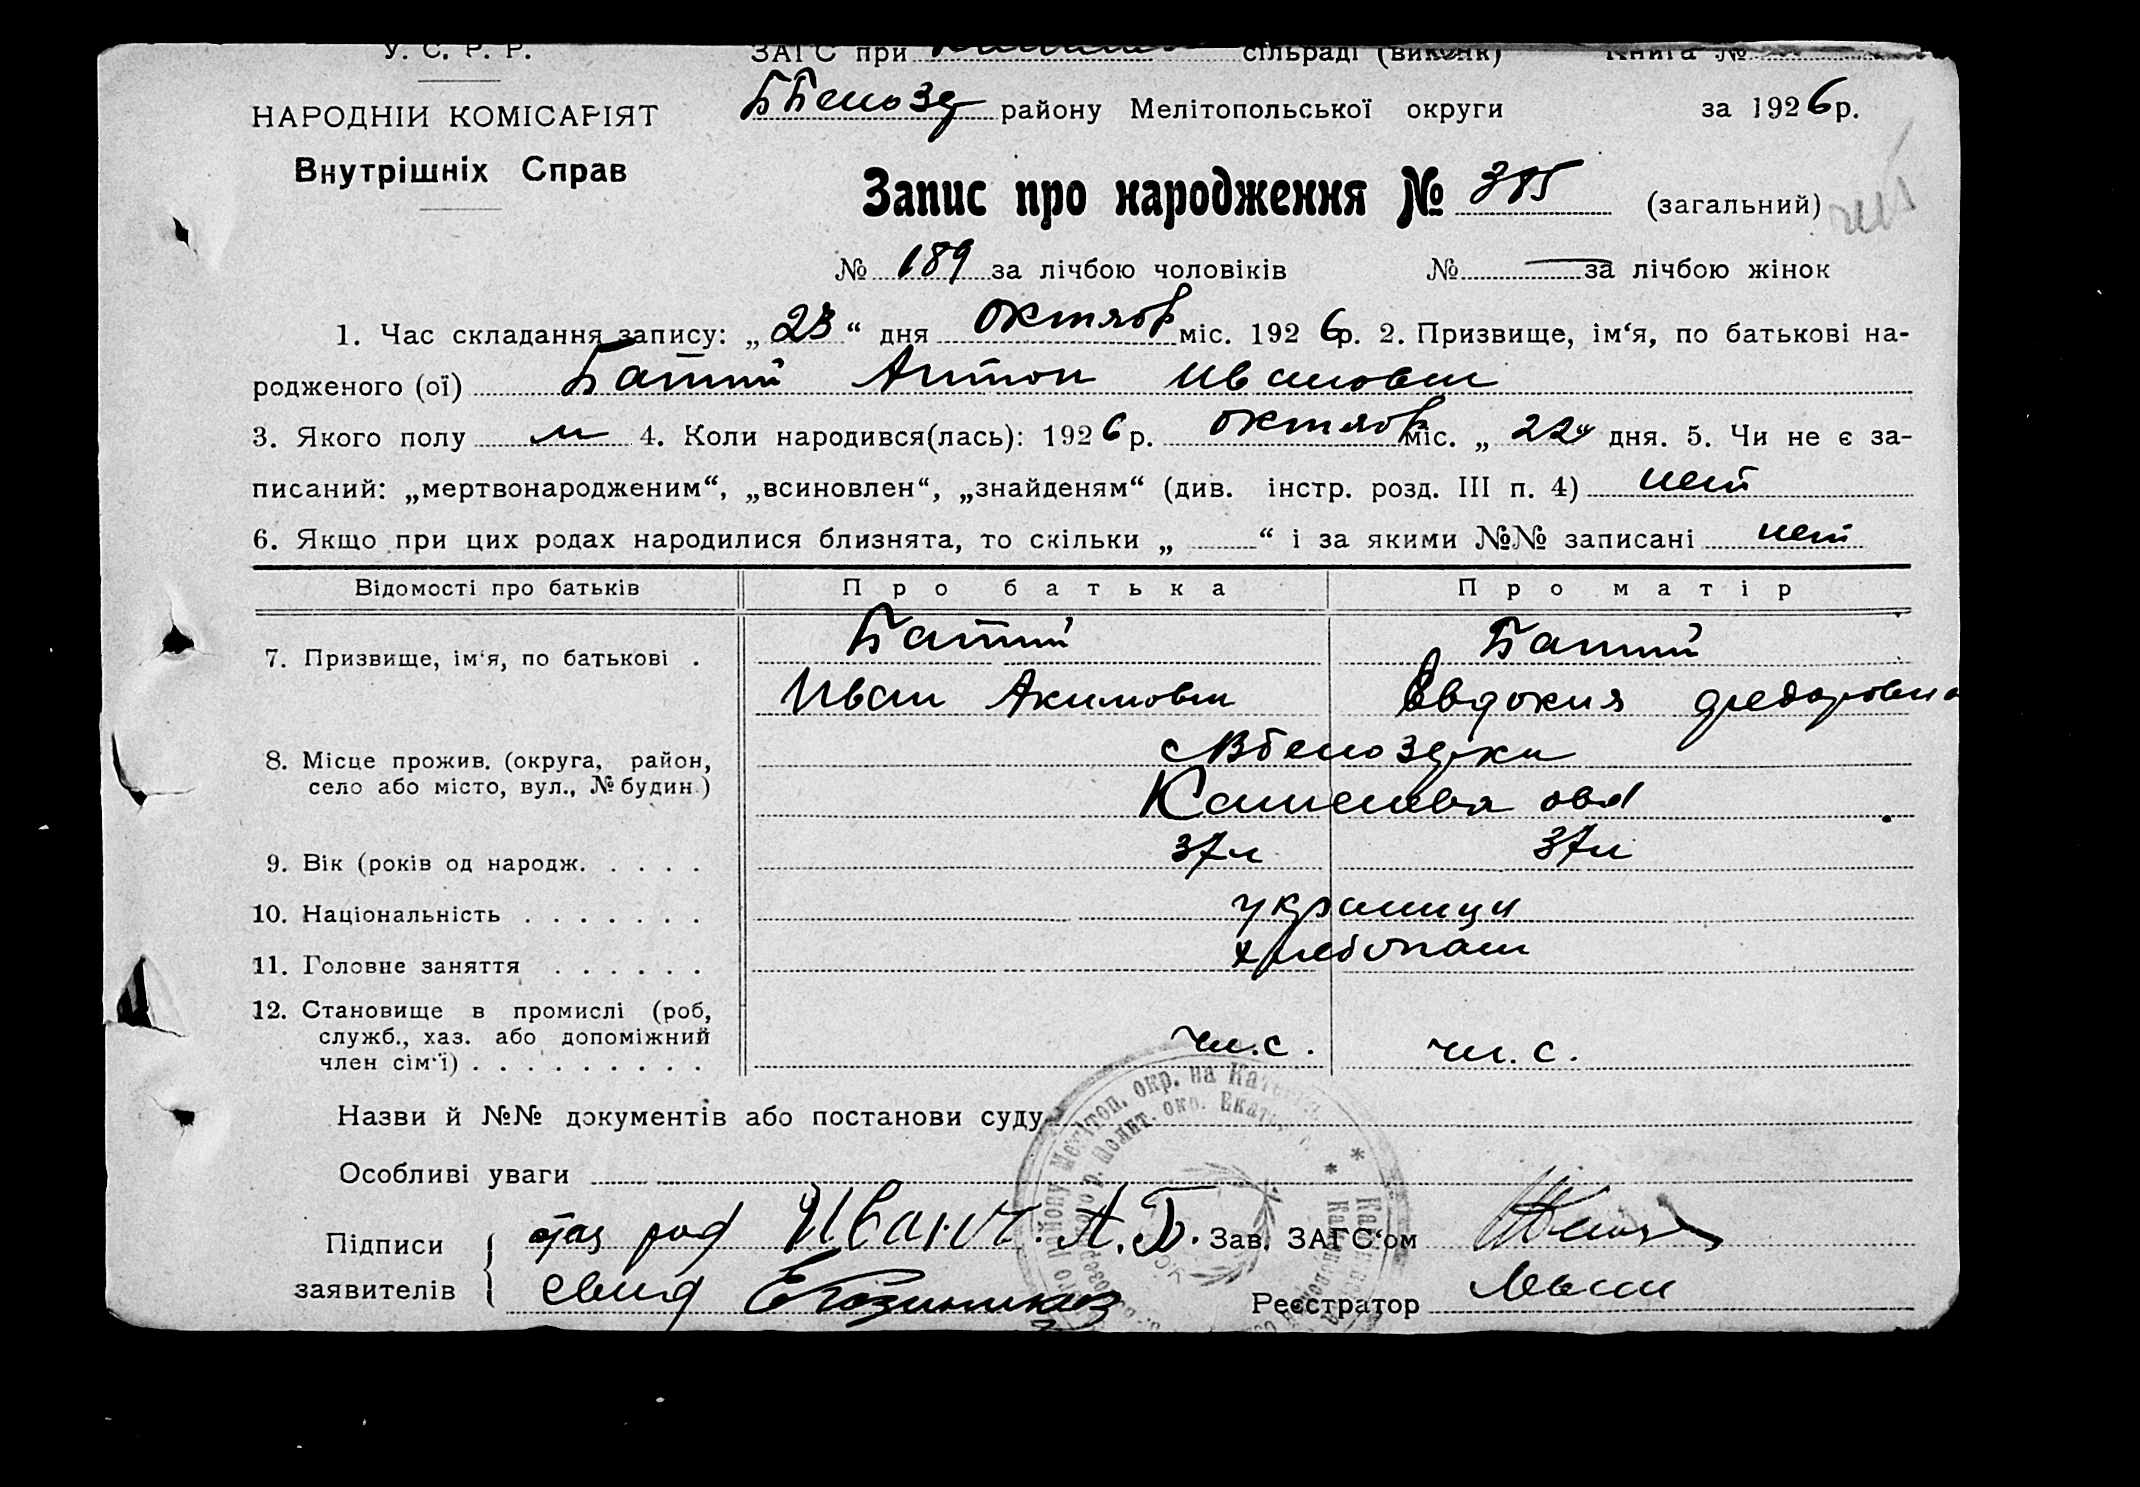 У. С. Р. Р. ЗАГС при сільраді (виконк) Книга №
НАРОДНІЙ КОМІСАРІЯТ
ББелозер району Мелітопольської округи за 1926р.
Внутрішніх Справ
Запис про народження № 385 (загальний)
№ 189 за лічбою чоловіків № — за лічбою жінок
1. Час складання запису: „23“ дня октяб міс. 1926р. 2. Призвище, ім‘я, по батькові на-
родженого (ої) Батий Антон Иванович
3. Якого полу м 4. Коли народився(лась): 1926р. октяб міс. „22“ дня. 5. Чи не є за-
писаний: „мертвонародженим“, „всиновлен“, „знайденям“ (див. інстр. розд. III п. 4) нет
6. Якщо при цих родах народилися близнята, то скільки „ “ і за якими №№ записані нет
Відомості про батьків Про батька Про матір
7. Призвище, ім‘я, по батькові . Батий Батий
Иван Акимович Евдокия Федоровна
8. Місце прожив. (округа, район,
село або місто, вул., № будин.)
9. Вік (років од народж. . . . . 37л 37л
10. Національність . . . . . . . украинци
11. Головне заняття . . . . . . хлебопаш
12. Становище в промислі (роб,
служб., хаз. або допоміжний
член сім‘ї) . . . . . . . . . чл.с. чл.с.
Назви й №№ документів або постанови суду
Особливі уваги
Підписи
заявителів
отец Иван А.Б. Зав. ЗАГС‘ом
свид Реєстратор